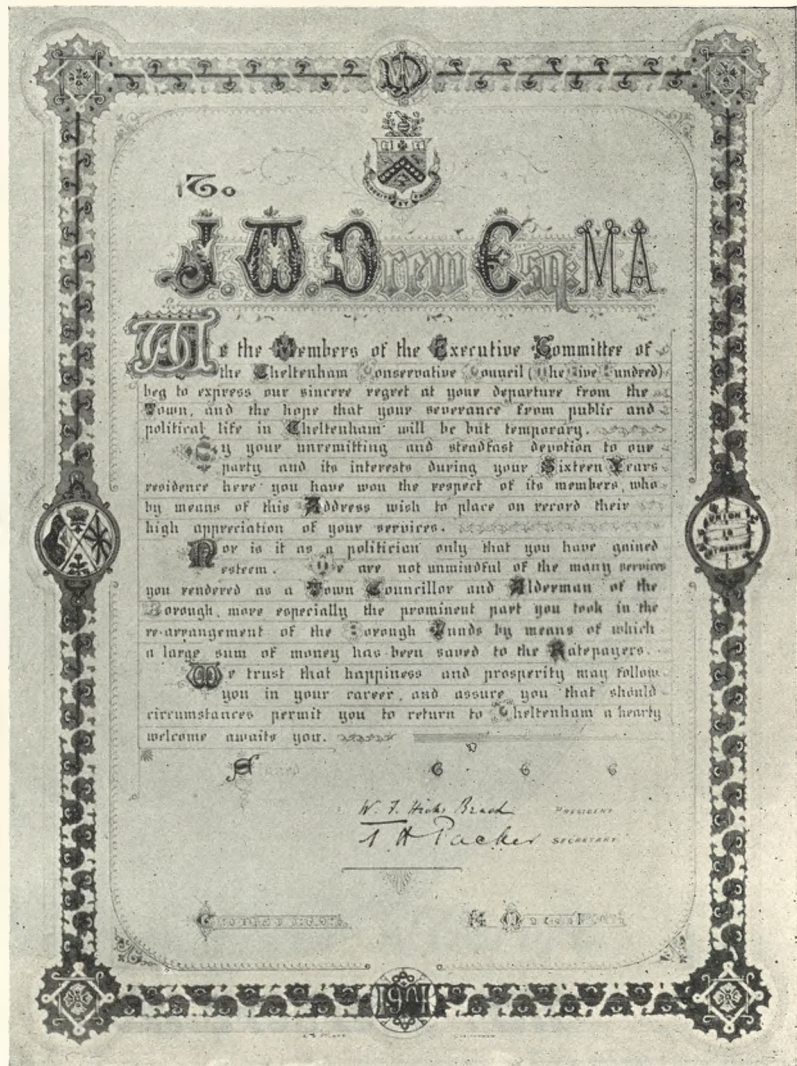 To
J. W. Drew Esq: MA.
We the Members of the Executive Committee of
the Cheltenham Conservative Council (The Five Hundred)
beg to express our sincere regret at your departure from the
Town, and the hope that your severance from public and
political life in Cheltenham will be but temporary.
By your unremitting and steadfast devotion to our
party and its interests during your Sixteen Years
residence here you have won the respect of its members, who
by means of this Address wish to place on record their
high appreciation of your services.
Nor is it as a politician only that you have gained
esteem. We are not unmindful of the many services
you rendered as a Town Councillor and Alderman of the
Borough, more especially the prominent part you took in the
re-arrangement of the Borough Funds by means of which
a large sum of money has been saved to the Ratepayers.
We trust that happiness and prosperity may follow
you in your career, and assure you that should
circumstances permit you to return to Cheltenham a hearty
welcome awaits you.
W. F. Hicks Beach PRESIDENT
A H Packer SECRETARY
UNION IS STRENGTH
1901